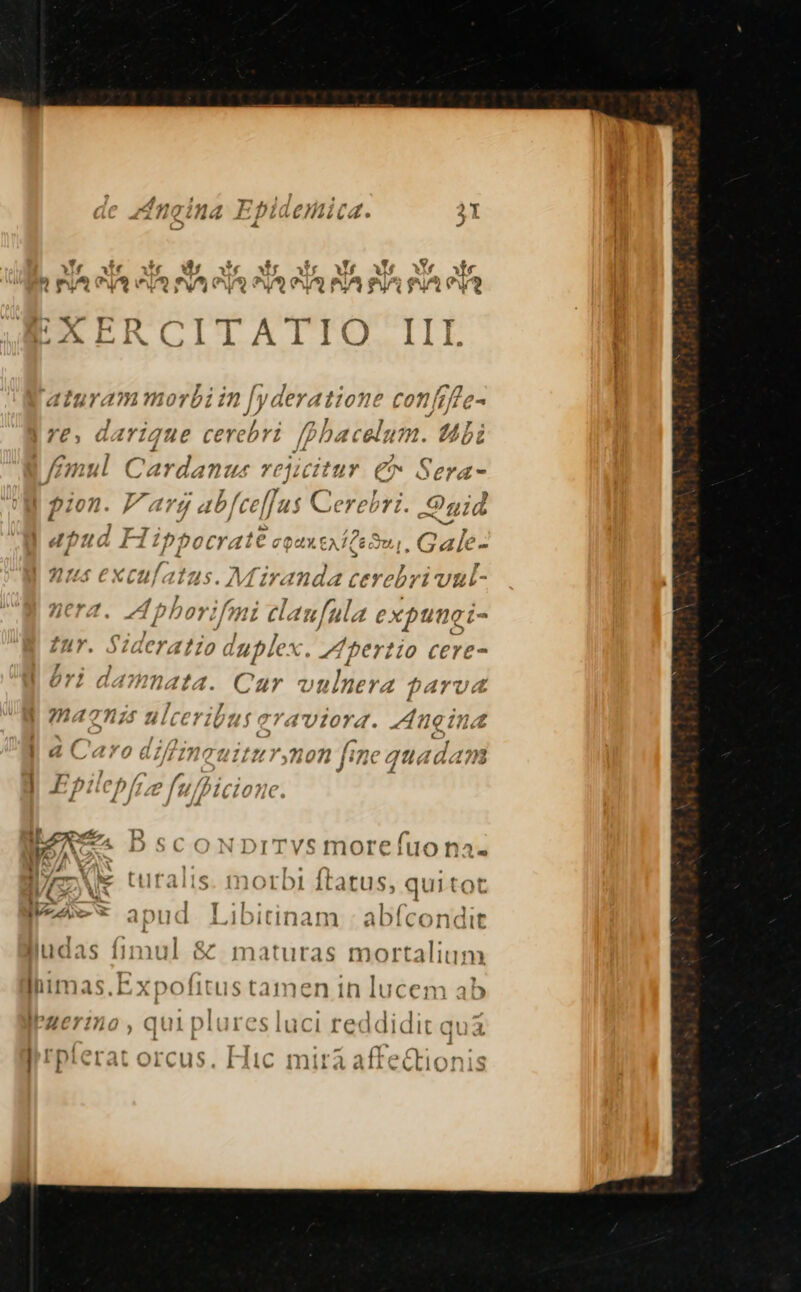 de Angina Epidemica. 31
EXERCITATIO III.
Naturam morbi in ſyderatione conſiſte-
re, darique cerebri ſphacelum. Ubi
ſimul Cardanus rejicitur & Sera-
pion. Varij abſceſſus Cerebri. Quid
apud Hippocratē Gale-
nus excuſatus. Miranda cerebri vul-
nera. Aphoriſmi clauſula expungi-
tur. Sideratio duplex. Apertio cere-
bri damnata. Cur vulnera parva
magnis ulceribus graviora. Angina
à Caro diſſinguitur, non ſine quadam
Epilepſiæ ſuſpicione.
BSCONDITVS more ſuo na-
turalis morbi ſtatus, qui tot
apud Libitinam abſcondit
udas ſimul & maturas mortalium
nimas. Expoſitus tamen in lucem ab
erino, qui plures luci reddidit quà
rpſerat orcus. Hic mirà affectionis